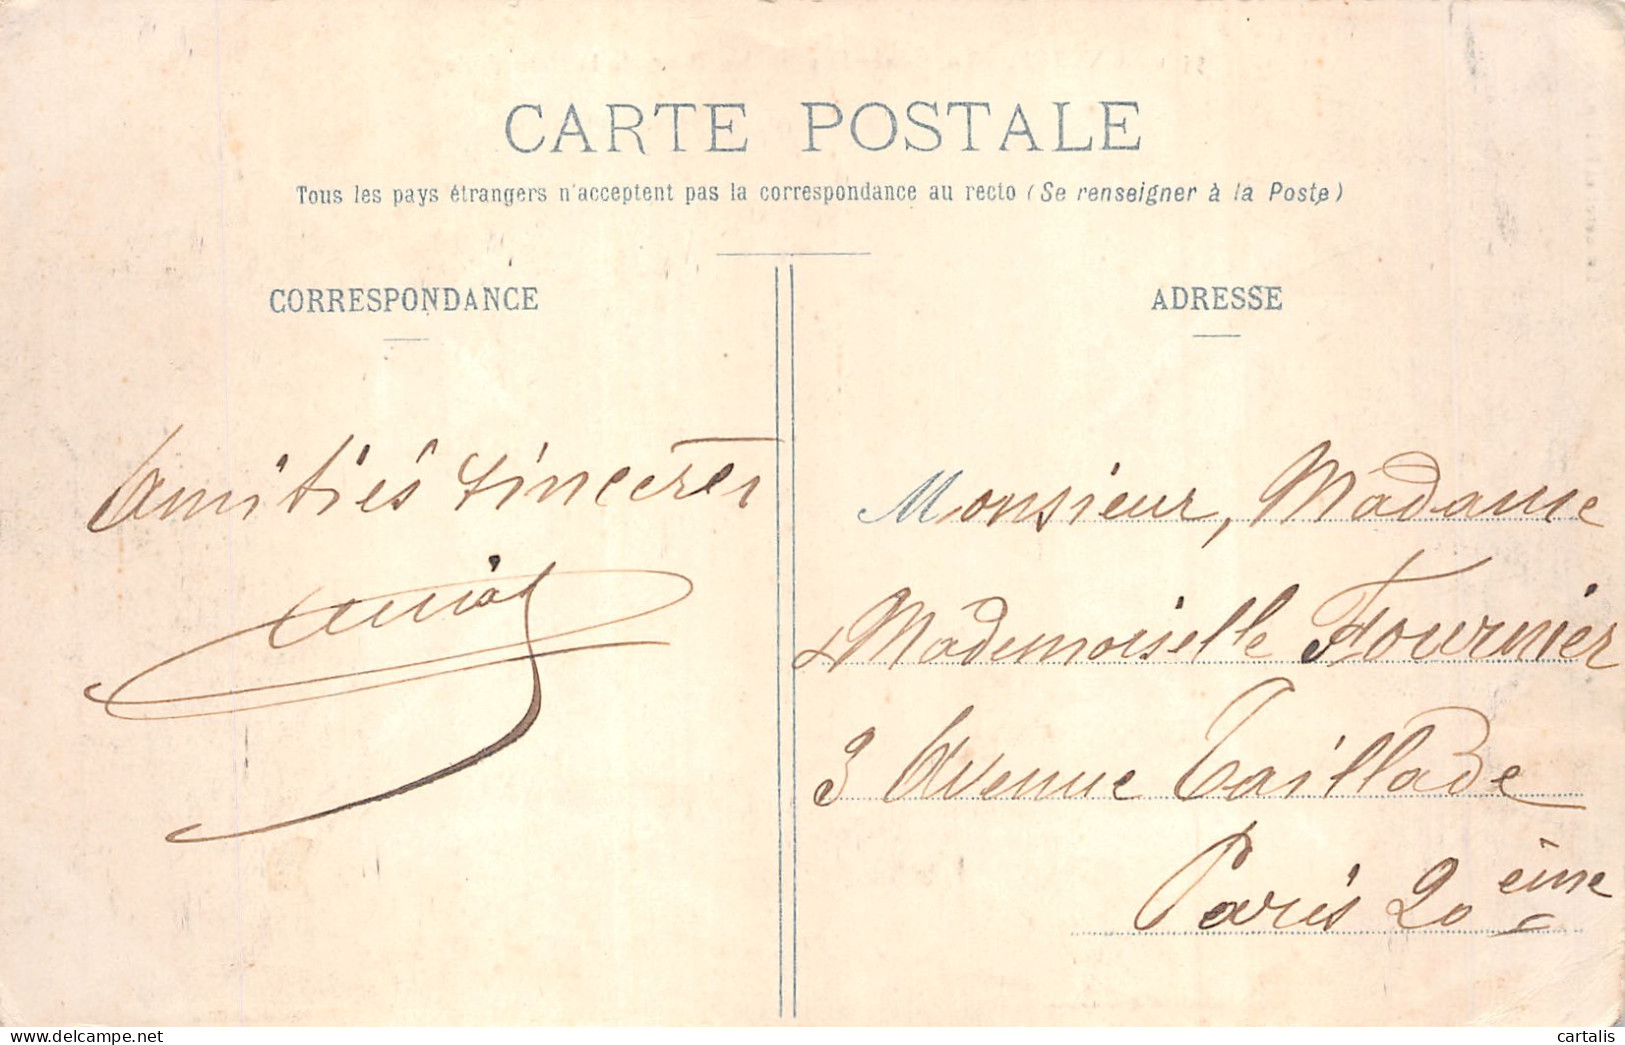 CARTE POSTALE
Tous les pays étrangers n'acceptent pas la correspondance au recto (Se renseigner à la Poste)
CORRESPONDANCE
Amitiés sincères
ADRESSE
Monsieur, Madame
& Mademoiselle Fournier
3 Avenue Taillade
Paris 20 ème
cartalis